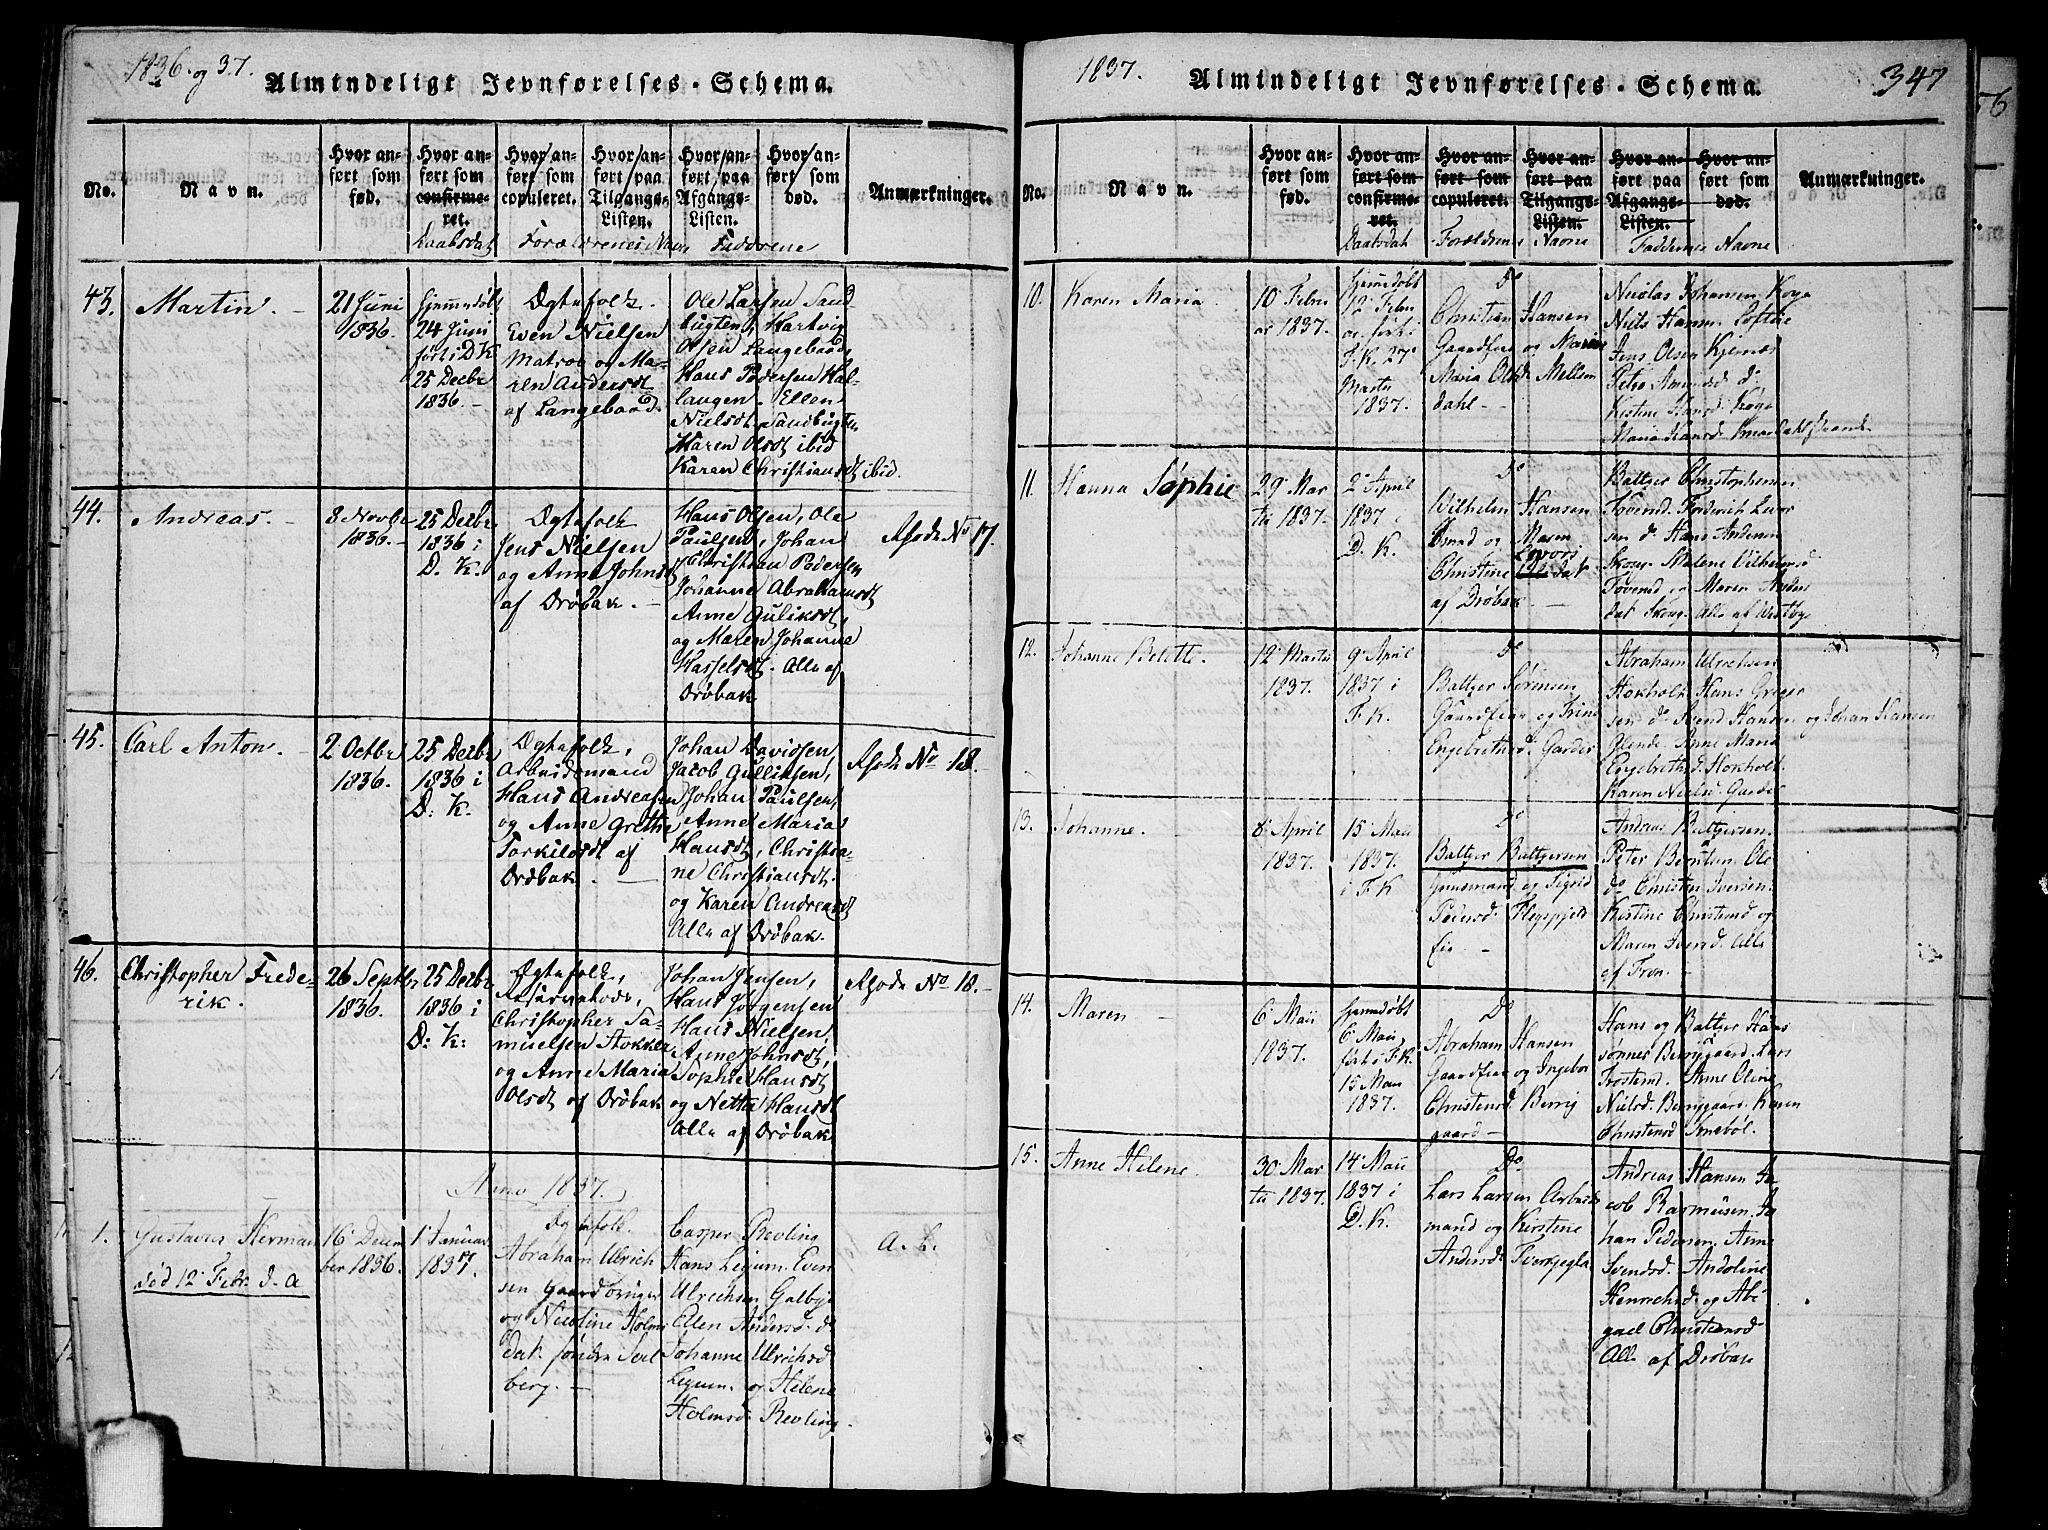 1836 og 37.
Almindeligt Jevnførelses-Schema.
No.
Navn.
Hvor anført som fød.
Hvor anført som confirmeret.
Hvor anført som copuleret.
Hvor anført paa Tilgangs-Listen.
Hvor anført paa Afgangs-Listen.
Hvor anført som død.
Anmærkninger.
Daabsdat
Forældrenes Navn
Fadderne
43.
Martin.
21 Juni
1836.
Hjemmedøbt
24 Juni
ført i D K
25 Decbr
1836.
Ægtefolk
Even Nielsen
Matros og Ma-
ren Andersdt
af Langebaad.
Ole Larsen Sand-
bugten, Hartvig
Olsen Langebaad,
Hans Pedersen Hal-
langen. Ellen
Nielsdt Sandbugten
Karen Olsdt ibid
Karen Christiansdt ibid.
44.
Andreas.
8 Novbr
1836.
25 Decbr
1836 i
D. K.
Ægtefolk
Jens Nielsen
og Anne Johnsdt
af Drøbak.
Hans Olsen, Ole
Paulsen, Johan
Christian Pedersen
Johanne Abrahamsdt
Anne Guliksdt,
og Maren Johanne
Hasselsdt. Alle af
Drøbak
No 17.
45.
Carl Anton.
2 Octbr
1836.
25 Decbr
1836 i
D: K.
Ægtefolk,
Arbeidsmand
Hans Andreasen
og Anne Grethe
Torkilsdt af
Drøbak.
Johan Davidsen
Jacob Gulliksen,
Johan Paulsen,
Anne Maria
Hansdt, Christia-
ne Christiansdt.
og Karen Andreasdt
Alle af Drøbak.
No 18.
46.
Christopher Frede-
rik.
26 Septbr
1836.
25 Decbr
1836 i
D: K:
Ægtefolk,
Christopher Sa-
muelsen Stokker
og Anne Maria
Olsdt af Drøbak
Johan Jensen,
Hans Jørgensen
Hans Nielsen,
Anne Johnsdt,
Sophie Hansdt
og Netta Hansdt
Alle af Drøbak
No 18.
Anno 1837.
1.
Gustavus Herman
død 12 Febr. d. A
16 Decem
ber 1836.
1 Januar
1837.
Ægtefolk.
Abraham Ulrich
sen Gaardbruger
og Nicoline Holms
dat. søndre Sell
berg.
Casper Revling
Hans Legum. Even
Ulrichsen Galbye
Ellen Andersd. do
Johanne Ulrichsd
Legum. og Helene
Holmsd. Revling.
1837.
Almindeligt Jevnførelses-Schema.
347
No.
Navn.
Hvor anført som fød.
Hvor anført som confirmeret.
Hvor anført som copuleret.
Hvor anført paa Tilgangs-Listen.
Hvor anført paa Afgangs-Listen.
Hvor anført som død.
Anmærkninger.
Daabsdat
Forældrenes Navne
Faddernes Navne
10.
Karen Maria.
10 Febru
ar 1837.
hjemdøbt
12 Febru
ar ført i
F. K. 27
Martii
1837.
Do
Christian Hansen
Maria Olsd. Mellem
dahl
Nicolas Johansen Koga
Niels Hansen
Jens Olsen Kjernæs
Kistine Hansd. Koga
Maria Hansd.
11.
Hanna Sophie
29 Mar
tii 1837.
2 April
1837 i
D. K.
Do
Wilhelm Hansen
Smed og Maren
Christine Levors
dat
af Drøbak
Baltzer Christophersen
sen do Hans Andersen
Skoug. Malene Vilhelmsd
og Maren Anders
dat Skoug. Alle af Vestbye
12.
Johanne Belette.
12 Martii
1837.
9 April
1837 i
F. K.
Do
Baltzer Sørensen
og Trine
Engebrethsd. Garder
Abraham Ulrichsen
Hoxholt Hans Grege
sen do Svend Hansen og Johan Hansen
Glende. Anne Maria
Engebrethsd. Hoxholt
Karen Nielsd Garder
13.
Johanne.
8 April
1837.
15 Maii
1837.
i F. K
Do
Baltzer Baltzersen
Huusmand og Sigrid
Pedersd.
Eie
Andreas Baltzersen.
Peter Berntsen Ole
do Christen Iversen
Kistine Christensd og
Maren Iversd. Alle
af Fron.
14.
Maren
6 Maii
1837.
hjemdøbt
6 Maii,
ført i F. K.
15 Maii
1837.
Do
Abraham Hansen
og Ingebor
Christensd. Berrig
gaard
Hans og Baltzer Hans
sønner Berrggaard. Lars
Anne Oline
Nielsd. Berrggaard. Karen
Christensd
15.
Anne Helene.
30 Mar
tii 1837.
14 Maii
1837 i
D. K.
Do
Lars Larsen Arbeids
mand og Kirstine
Andersd.
Andreas Hansen Ja
cob Rasmusen. Jo
han Pedersen. Anne
Svendsd. Andoline
Henrichsd. og Abi
gael Christensd
Alle af Drøbak